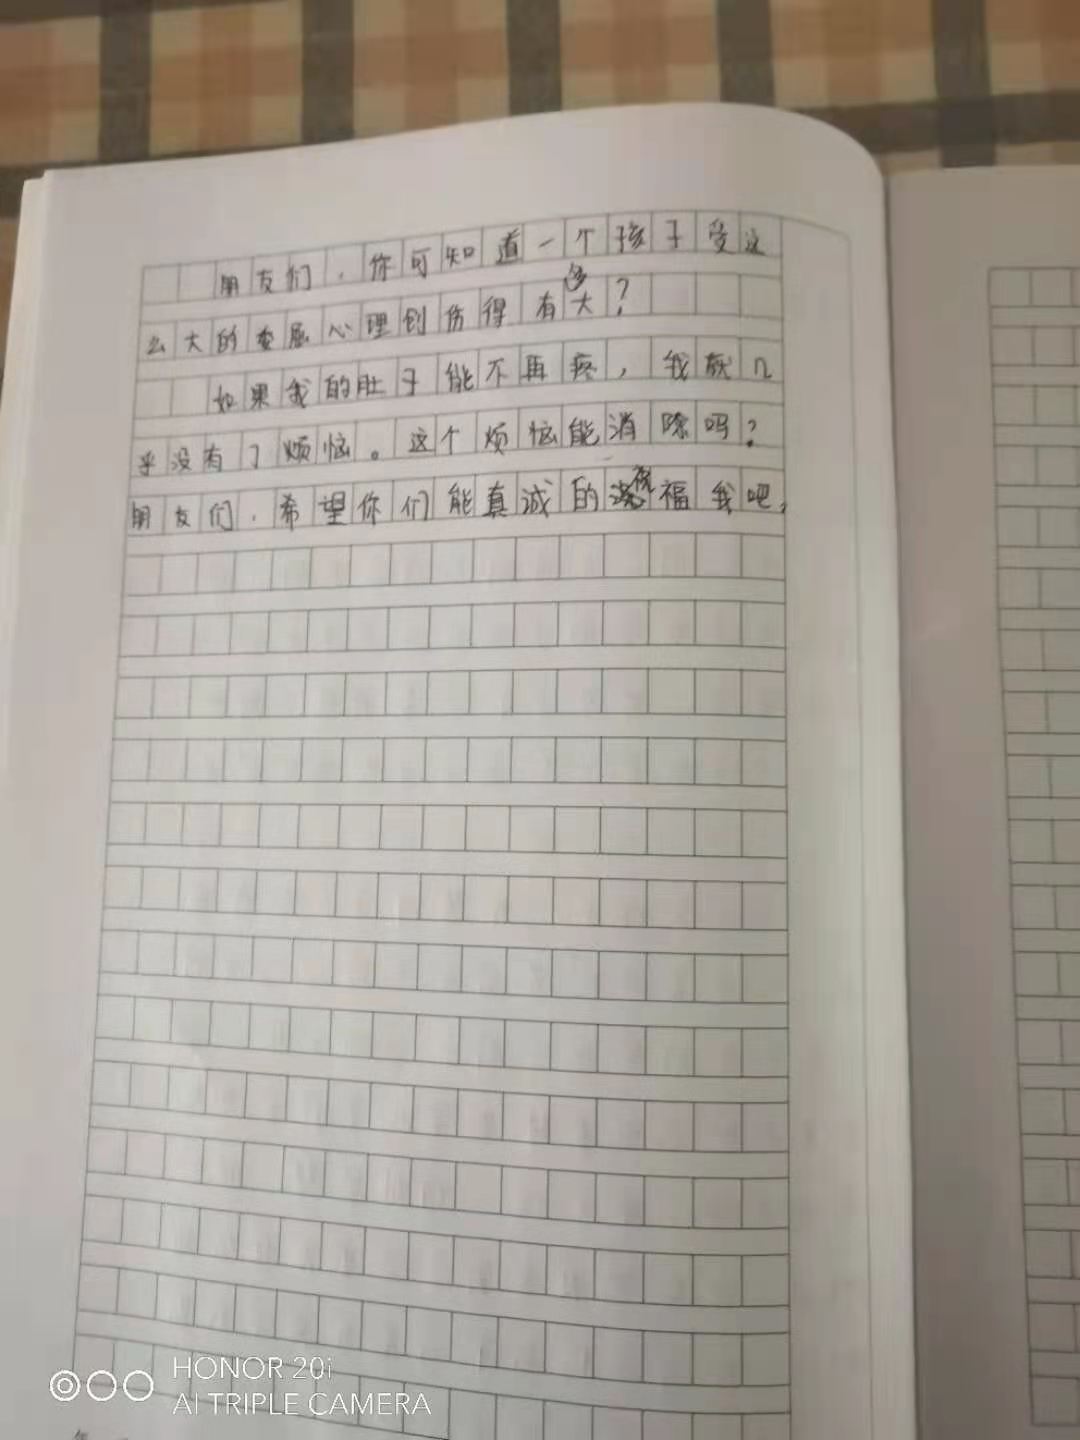 朋友们，你可知道一个孩子受这
么大的委屈心理创伤得有多大？
如果我的肚子能不再疼，我就几
乎没有了烦恼。这个烦恼能消除吗？
朋友们，希望你们能真诚的祝福我吧，
HONOR 20i
AI TRIPLE CAMERA